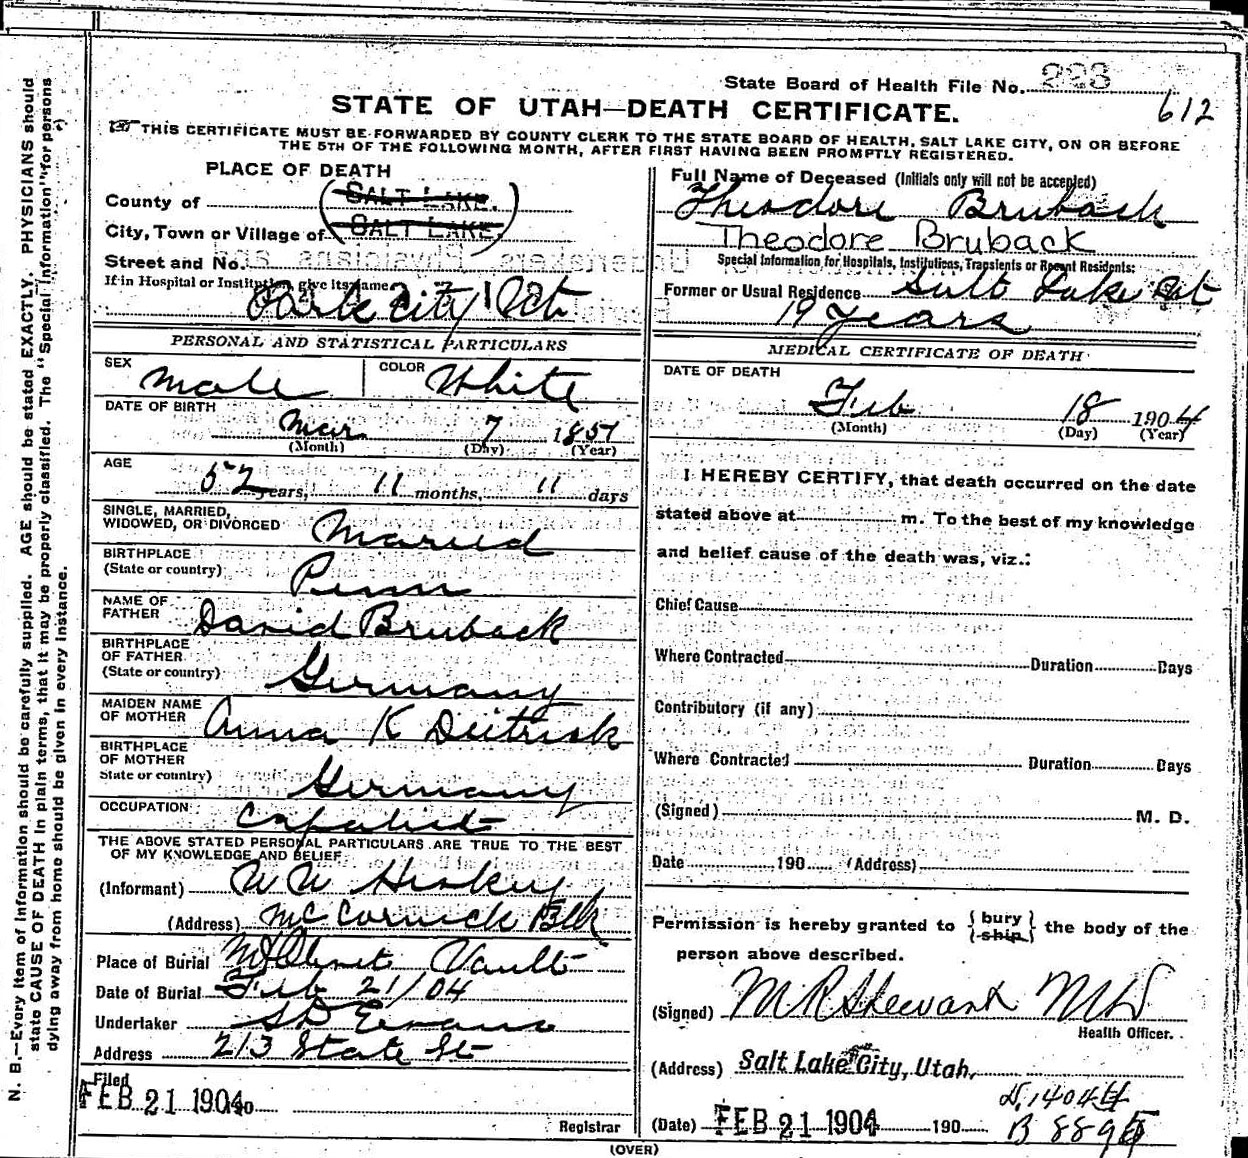 State Board of Health File No. 223
612
STATE OF UTAH—DEATH CERTIFICATE.
THIS CERTIFICATE MUST BE FORWARDED BY COUNTY CLERK TO THE STATE BOARD OF HEALTH, SALT LAKE CITY, ON OR BEFORE
THE 5TH OF THE FOLLOWING MONTH, AFTER FIRST HAVING BEEN PROMPTLY REGISTERED.
PLACE OF DEATH
County of (SALT LAKE.
City, Town or Village of (SALT LAKE.)
Street and No.
If in Hospital or Institution, give its name
Park City Ut
PERSONAL AND STATISTICAL PARTICULARS
SEX Male COLOR White
DATE OF BIRTH Mar 7 1851
(Month) (Day) (Year)
AGE 52 years, 11 months, 11 days
SINGLE, MARRIED,
WIDOWED, OR DIVORCED Married
BIRTHPLACE
(State or country) Penn
NAME OF
FATHER David Bruback
BIRTHPLACE
OF FATHER
(State or country) Germany
MAIDEN NAME
OF MOTHER Anna K Deitrick
BIRTHPLACE
OF MOTHER
State or country) Germany
OCCUPATION Capalist
THE ABOVE STATED PERSONAL PARTICULARS ARE TRUE TO THE BEST
OF MY KNOWLEDGE AND BELIEF
(Informant)
(Address) McCornick Blk
Place of Burial Mt Olivet Vault
Date of Burial Feb 21/04
Undertaker SD Evans
Address 213 State St
Filed
FEB 21 1904 190
Registrar
Full Name of Deceased (Initials only will not be accepted)
Theodore Bruback
Theodore Bruback
Special Information for Hospitals, Institutions, Transients or Recent Residents:
Former or Usual Residence Salt Lake
19 years
MEDICAL CERTIFICATE OF DEATH
DATE OF DEATH
Feb 18 1904
(Month) (Day) (Year)
I HEREBY CERTIFY, that death occurred on the date
stated above at m. To the best of my knowledge
and belief cause of the death was, viz.:
Chief Cause
Where Contracted Duration Days
Contributory (if any)
Where Contracted Duration Days
(Signed) M. D.
Date 190 (Address)
Permission is hereby granted to {bury
{ship} the body of the
person above described.
(Signed) M R Stewart MD
Health Officer.
(Address) Salt Lake City, Utah,
(Date) FEB 21 1904 190
(OVER)
N. B.—Every item of information should be carefully supplied. AGE should be stated EXACTLY. PHYSICIANS should
state CAUSE OF DEATH in plain terms, that it may be properly classified. The "Special Information" for persons
dying away from home should be given in every instance.